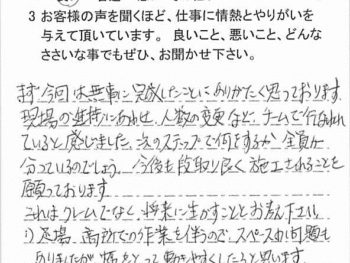 3 お客様の声を聞くほど、仕事に情熱とやりがいを
与えて頂いています。 良いこと、悪いこと、どんな
ささいな事でもぜひ、お聞かせ下さい。
まず今回は無事に完成したことにありがたく思っております
現場の進捗にあわせ、人数の変更など、チームで行なわれ
ていると感じました、次のステップで何をするか全員が
分っているのでしょう。 今後も段取り良く施工されることを
願っております
これはクレームでなく、将来に生かすこととお考え下さい
1) 足場、高所での作業を伴うので、スペースの問題も
ありましたが 幅をとって動きやすくしたらと思います